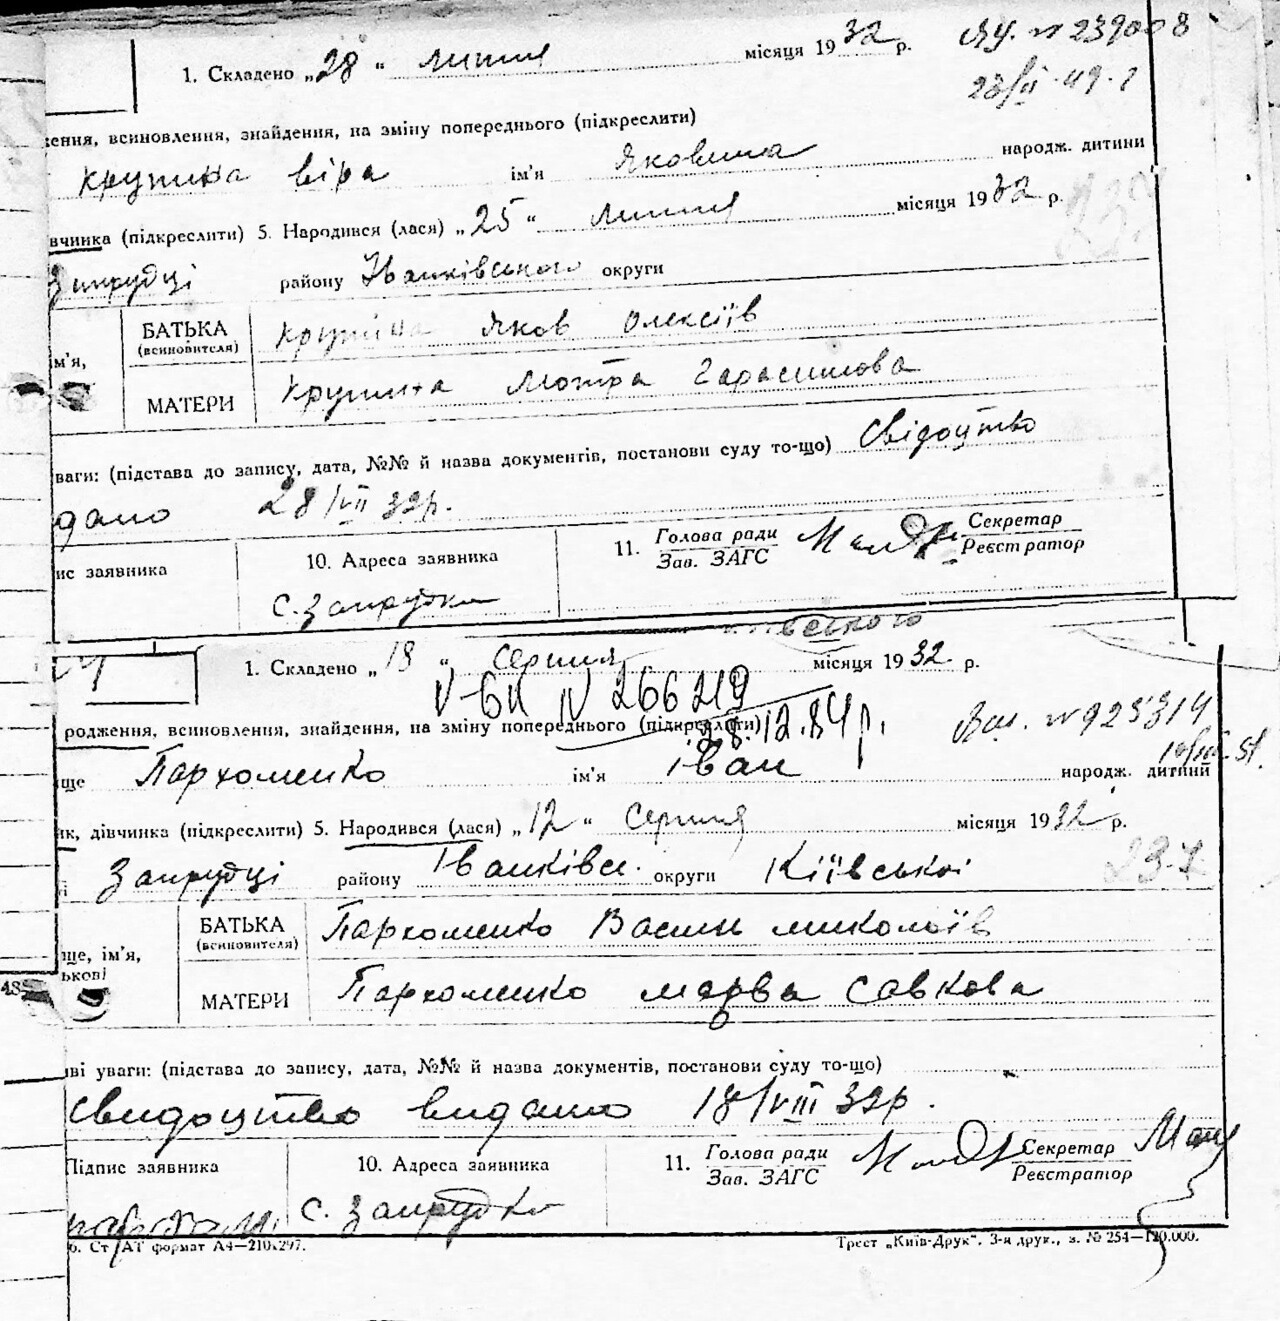 1. Складено „28“ липня місяця 1932 р. Яч. № 239008
23/II-49.
ення, всиновлення, знайдення, на зміну попереднього (підкреслити)
Крупина Віра ім'я Яковина народж. дитини
вчинка (підкреслити) 5. Народився (лася) „25“ липня місяця 1932 р.
Запрудці району Іванківського округи
м'я,
БАТЬКА (всиновителя) Крупина Яков Олексіїв
МАТЕРИ Крупина Мотра Гарасимова
ваги: (підстава до запису, дата, №№ й назва документів, постанови суду то-що) Свідоцтво
дано 28/VII 32р.
ис заявника 10. Адреса заявника 11. Голова ради Секретар
Зав. ЗАГС Реєстратор
с. Запрудка
1. Складено „18“ серпня місяця 1932 р.
V-БК N 266219
родження, всиновлення, знайдення, на зміну попереднього (підкреслити) 28.12.84р. № 925314
ще Пархоменко ім'я Іван народж. дитини
ик, дівчинка (підкреслити) 5. Народився (лася) „12“ серпня місяця 1932 р.
і Запрудці району Іванківсь. округи Кіївської 237
БАТЬКА (всиновителя) Пархоменко Васил миколаїв
ще, ім'я,
ькові
МАТЕРИ Пархоменко марва Савкова
48
ві уваги: (підстава до запису, дата, №№ й назва документів, постанови суду то-що)
свидоцтво видано 18/VIII 32р.
Підпис заявника 10. Адреса заявника 11. Голова ради Секретар
Зав. ЗАГС Реєстратор
с. Запрудка
б. Ст АТ формат А4—210х297. Трест „Київ-Друк“. 3-я друк., з. № 254—120.000.